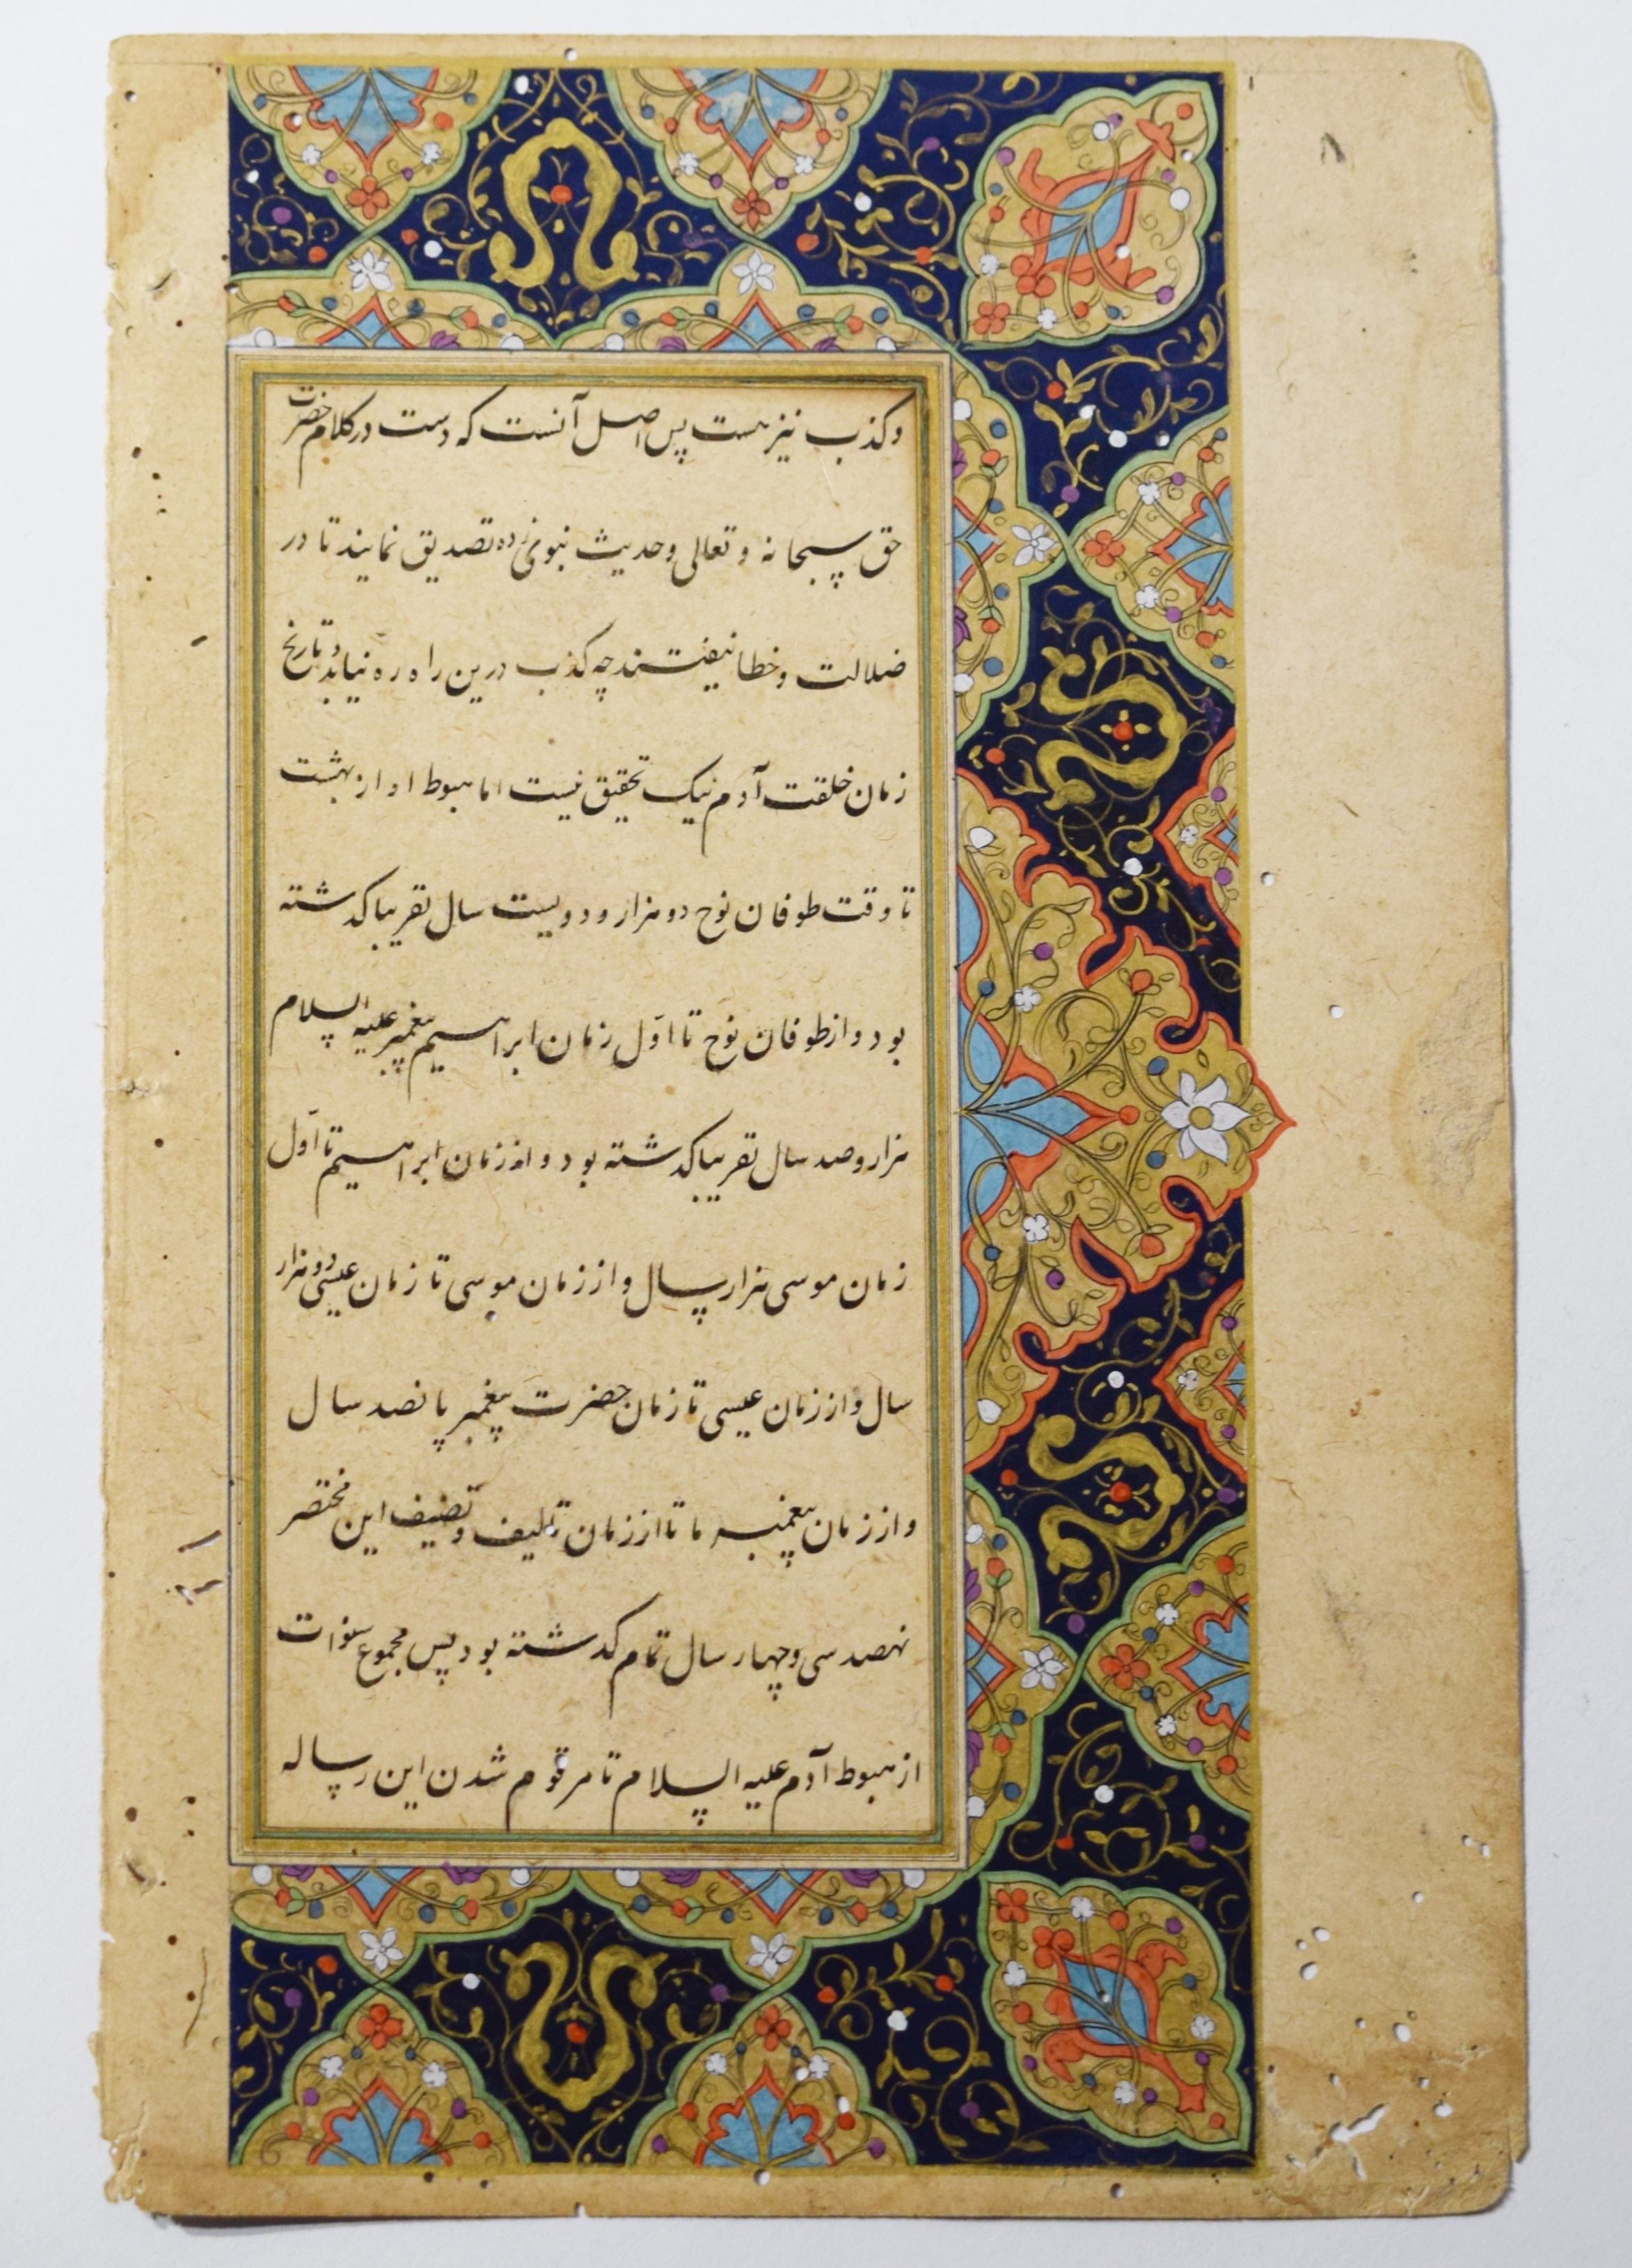 و کذب نیز هست پس اصل آنست که دست در کلام حضرت
حق سبحانه و تعالی و حدیث نبوی زده تصدیق نمایند تا در
ضلالت و خطا نیفتند چه کذب درین راه ره نیابد و تاریخ
زمان خلقت آدم نیک تحقیق نیست اما هبوط او از بهشت
تا وقت طوفان نوح دو هزار و دویست سال تقریبا کدشته
بود و از طوفان نوح تا اول زمان ابراهیم پیغمبر علیه السلام
هزار و صد سال تقریبا کدشته بود و از زمان ابراهیم تا اول
زمان موسی هزار سال و از زمان موسی تا زمان عیسی دو هزار
سال و از زمان عیسی تا زمان حضرت پیغمبر پانصد سال
و از زمان پیغمبر ما تا از زمان تالیف و تصنیف این مختصر
نهصد سی و چهار سال تمام کدشته بود پس مجموع سنوات
از هبوط آدم علیه السلام تا مرقوم شدن این رساله